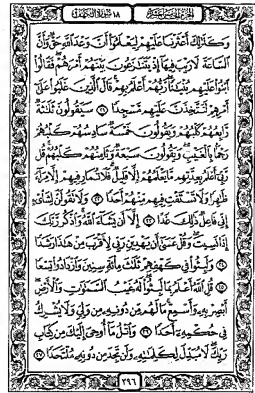 الجزء الخامس عشر ١٨ سورة الكهف
وَكَذَٰلِكَ أَعْثَرْنَا عَلَيْهِمْ لِيَعْلَمُوا أَنَّ وَعْدَ اللَّهِ حَقٌّ وَأَنَّ
السَّاعَةَ لَا رَيْبَ فِيهَا إِذْ يَتَنَازَعُونَ بَيْنَهُمْ أَمْرَهُمْ فَقَالُوا
ابْنُوا عَلَيْهِم بُنْيَانًا رَّبُّهُمْ أَعْلَمُ بِهِمْ قَالَ الَّذِينَ غَلَبُوا عَلَىٰ
أَمْرِهِمْ لَنَتَّخِذَنَّ عَلَيْهِم مَّسْجِدًا ٢١ سَيَقُولُونَ ثَلَاثَةٌ
رَّابِعُهُمْ كَلْبُهُمْ وَيَقُولُونَ خَمْسَةٌ سَادِسُهُمْ كَلْبُهُمْ
رَجْمًا بِالْغَيْبِ وَيَقُولُونَ سَبْعَةٌ وَثَامِنُهُمْ كَلْبُهُمْ قُل
رَّبِّي أَعْلَمُ بِعِدَّتِهِم مَّا يَعْلَمُهُمْ إِلَّا قَلِيلٌ فَلَا تُمَارِ فِيهِمْ إِلَّا مِرَاءً
ظَاهِرًا وَلَا تَسْتَفْتِ فِيهِم مِّنْهُمْ أَحَدًا ٢٢ وَلَا تَقُولَنَّ لِشَيْءٍ
إِنِّي فَاعِلٌ ذَٰلِكَ غَدًا ٢٣ إِلَّا أَن يَشَاءَ اللَّهُ وَاذْكُر رَّبَّكَ
إِذَا نَسِيتَ وَقُلْ عَسَىٰ أَن يَهْدِيَنِ رَبِّي لِأَقْرَبَ مِنْ هَٰذَا رَشَدًا
٢٤ وَلَبِثُوا فِي كَهْفِهِمْ ثَلَاثَ مِائَةٍ سِنِينَ وَازْدَادُوا تِسْعًا
٢٥ قُلِ اللَّهُ أَعْلَمُ بِمَا لَبِثُوا لَهُ غَيْبُ السَّمَاوَاتِ وَالْأَرْضِ
أَبْصِرْ بِهِ وَأَسْمِعْ مَا لَهُم مِّن دُونِهِ مِن وَلِيٍّ وَلَا يُشْرِكُ
فِي حُكْمِهِ أَحَدًا ٢٦ وَاتْلُ مَا أُوحِيَ إِلَيْكَ مِن كِتَابِ
رَبِّكَ لَا مُبَدِّلَ لِكَلِمَاتِهِ وَلَن تَجِدَ مِن دُونِهِ مُلْتَحَدًا ٢٧
٢٩٦